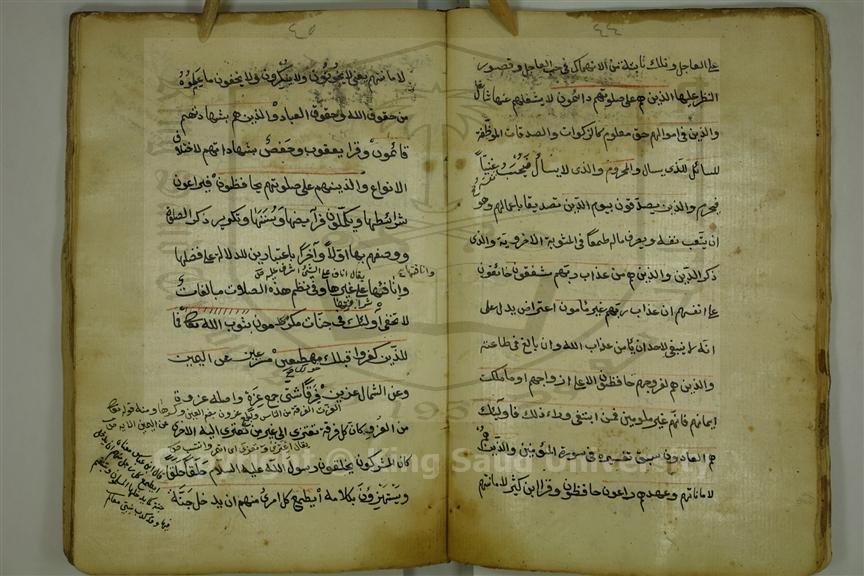 ٤٤
على العاجل وتلك ناشئة من الانهماك في حب العاجل وقصور
النظر عليها الذين هم على صلوتهم دائمون لا يشغلهم عنها شاغل
والذين في اموالهم حق معلوم كالزكوات والصدقات الموظفة
للسائل للذي يسال والمحروم والذي لا يسأل فيحسب غنياً
فيحرم والذين يصدقون بيوم الدين تصديقا باعمالهم وهو
ان يتعب نفسه ويصرف ماله طمعا في المثوبة الاخروية ولذلك
ذكر الدين والذين هم من عذاب ربهم مشفقون خائفون
على انفسهم ان عذاب ربهم غير مأمون اعتراض يدل على
انه لا ينبغي لاحد ان يأمن عذاب الله وان بالغ في طاعته
والذين هم لفروجهم حافظون الا على ازواجهم او ما ملكت
ايمانهم فانهم غير ملومين فمن ابتغى وراء ذلك فاولئك
هم العادون سبق تفسيره في سورة المؤمنين والذين هم
لاماناتهم وعهدهم راعون حافظون وقرا ابن كثير لامانتهم
٤٥
لامانتهم يعني لا يخونون ولا ينكرون ولا يخفون ما علموه
من حقوق الله وحقوق العباد والذين هم بشهادتهم
قائمون وقرا يعقوب وحفص بشهاداتهم لاختلاف
الانواع والذين هم على صلوتهم يحافظون فيراعون
شرائطها ويكملون فرائضها وسننها وتكرير ذكر الصلوة
ووصفهم بها اولا وآخرا باعتبارين للدلالة على فضلها
وانافتها على غيرها وفي نظم هذه الصلات مبالغات
لا تخفى اولئك في جنات مكرمون بثواب الله تعالى فما
للذين كفروا قبلك مهطعين مسرعين عن اليمين
وعن الشمال عزين فرقا شتى جمع عزة واصله عزوة
من العزو وكان كل فرقة تعتزى الى غير من تعتزى اليه الاخرى
كان المشركون يحلقون رسول الله عليه السلام حلقا حلقا
ويستهزؤن بكلامه أيطمع كل امرئ منهم ان يدخل جنة
Copyright © King Saud University
1957